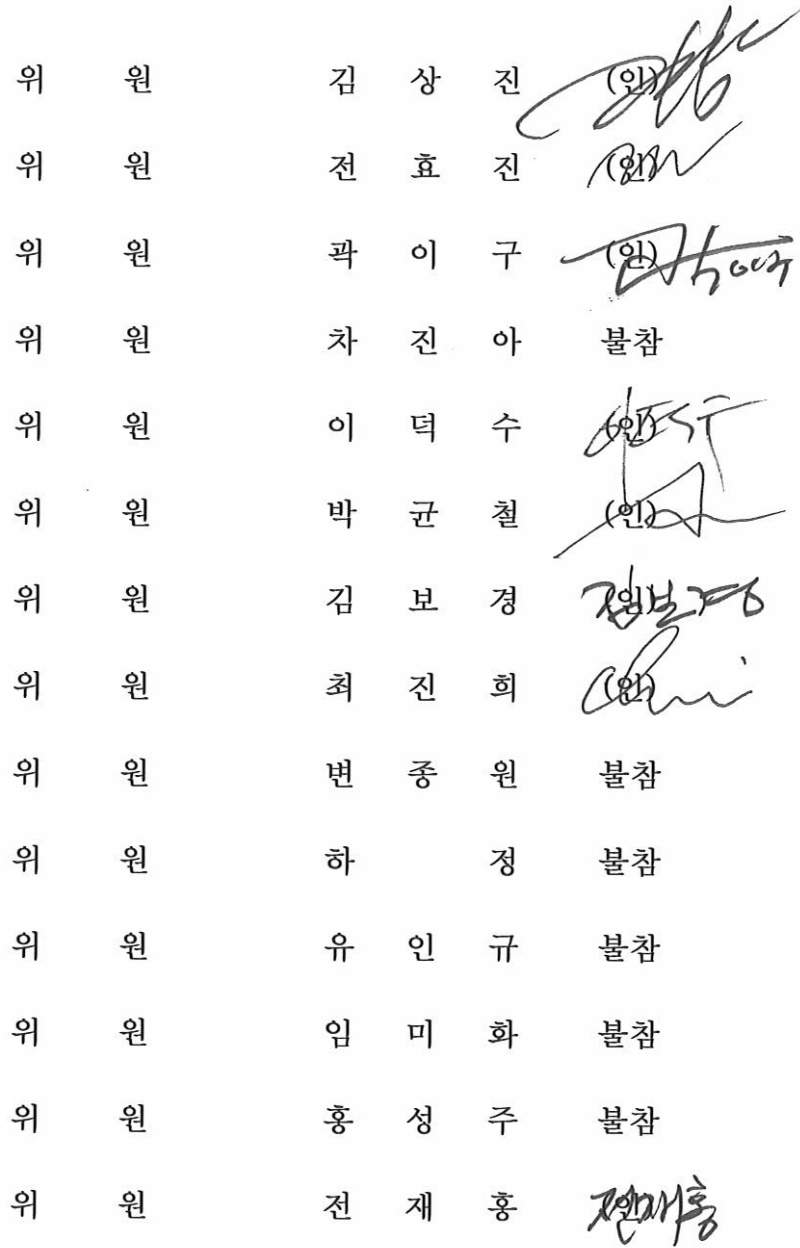 위 원 김 상 진 (인)
위 원 전 효 진 (인)
위 원 곽 이 구 (인)
위 원 차 진 아 불참
위 원 이 덕 수 (인)
위 원 박 균 철 (인)
위 원 김 보 경 (인) 김보경
위 원 최 진 희 (인)
위 원 변 종 원 불참
위 원 하 정 불참
위 원 유 인 규 불참
위 원 임 미 화 불참
위 원 홍 성 주 불참
위 원 전 재 홍 (인) 전재홍